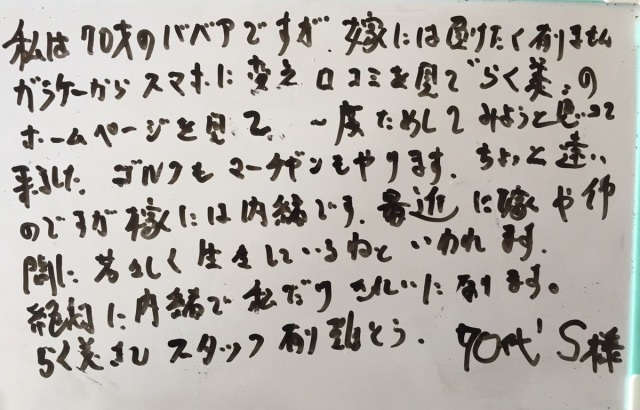 私は70才のババアですが、嫁には負けたく有りません
ガラケーからスマホに変え口コミを見て"らく美"の
ホームページを見て、一度ためしてみようと思って
来ました。ゴルフもマーヂャンもやります。ちょっと遠い
のですが嫁には内緒です。最近に嫁や仲
間に若々しく生き生きしているねといわれます。
絶対に内緒で私だけきれいに有ります。
らく美さんスタッフ有り難とう。70代 S様